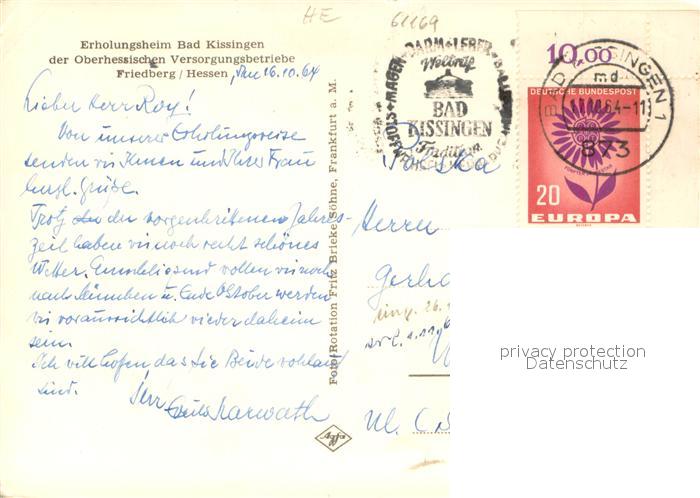 HE
61169
Erholungsheim Bad Kissingen
der Oberhessischen Versorgungsbetriebe
Friedberg / Hessen, den 16.10.64
Lieber Herr Roy!
Von unserer Erholungsreise
senden wir Ihnen und Ihrer Frau
herzl. Grüße.
Trotz der vorgeschrittenen Jahres-
zeit haben wir noch recht schönes
Wetter. Anschließend wollen wir noch
nach München u. Ende Oktober werden
wir voraussichtlich wieder daheim
sein.
Ich will hoffen, das Sie Beide wohlauf
sind.
Ihr
Foto/Rotation Fritz Brieke Söhne, Frankfurt a. M.
Agfa
MAGEN DARM LEBER
Weltruf
BAD
KISSINGEN
Tradition
10,00
BAD KISSINGEN 1
md
64-11
873
DEUTSCHE BUNDESPOST
20
EUROPA
Polska
Herrn
eing. 26.
Ul.
privacy protection
Datenschutz